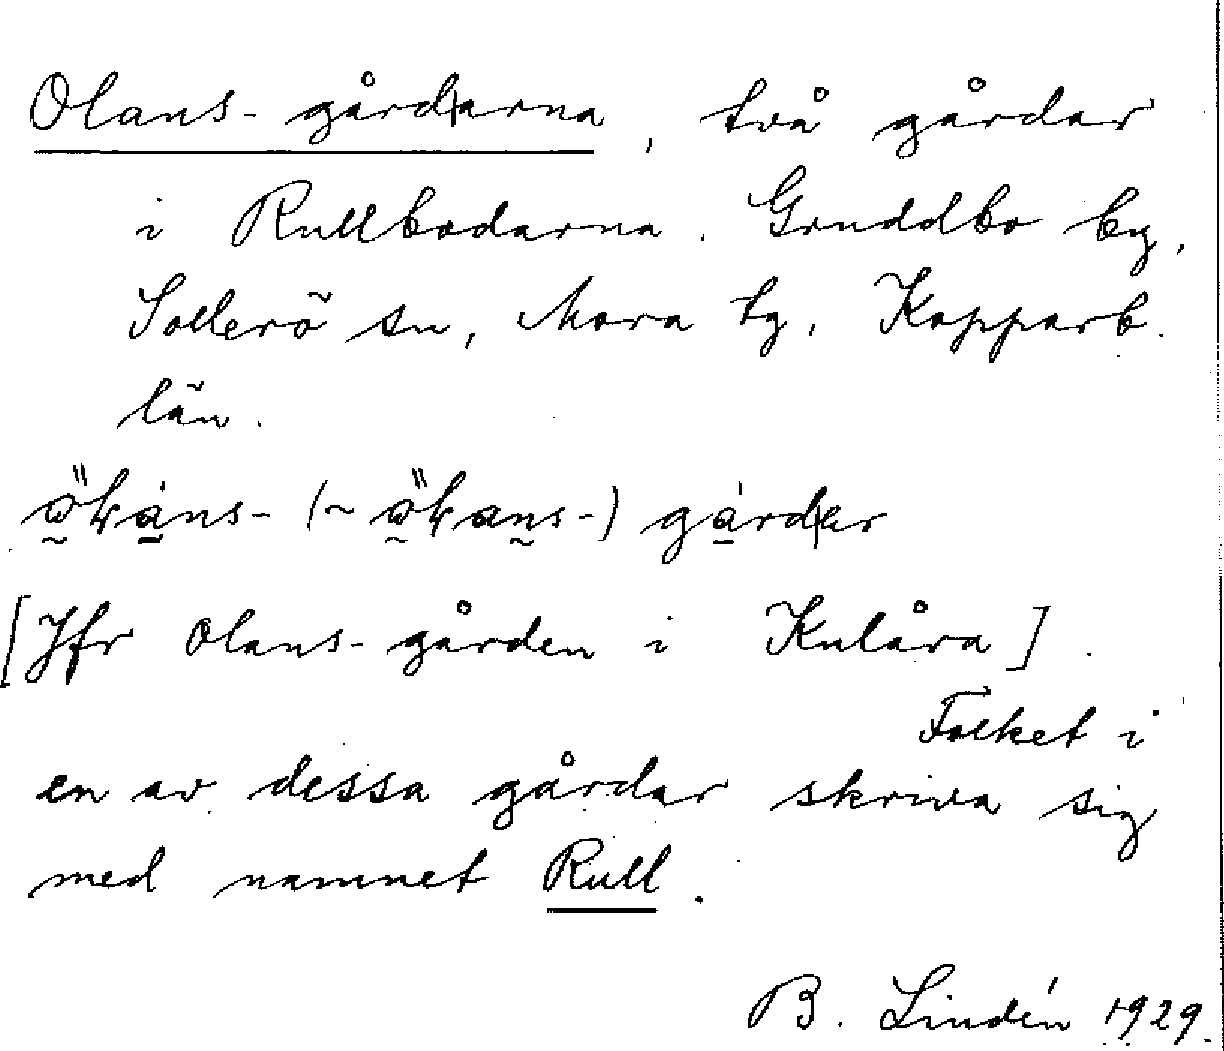 Olans-gård|arna, två gårdar
i Rullbodarna. Gruddbo by,
Sollerö sn, Mora tg, Kopparb.
län.
gård|ar
[Jfr Olans-gården i Kulåra].
Folket i
en av dessa gårdar skriva sig
med namnet Rull.
B. Lindén 1929.